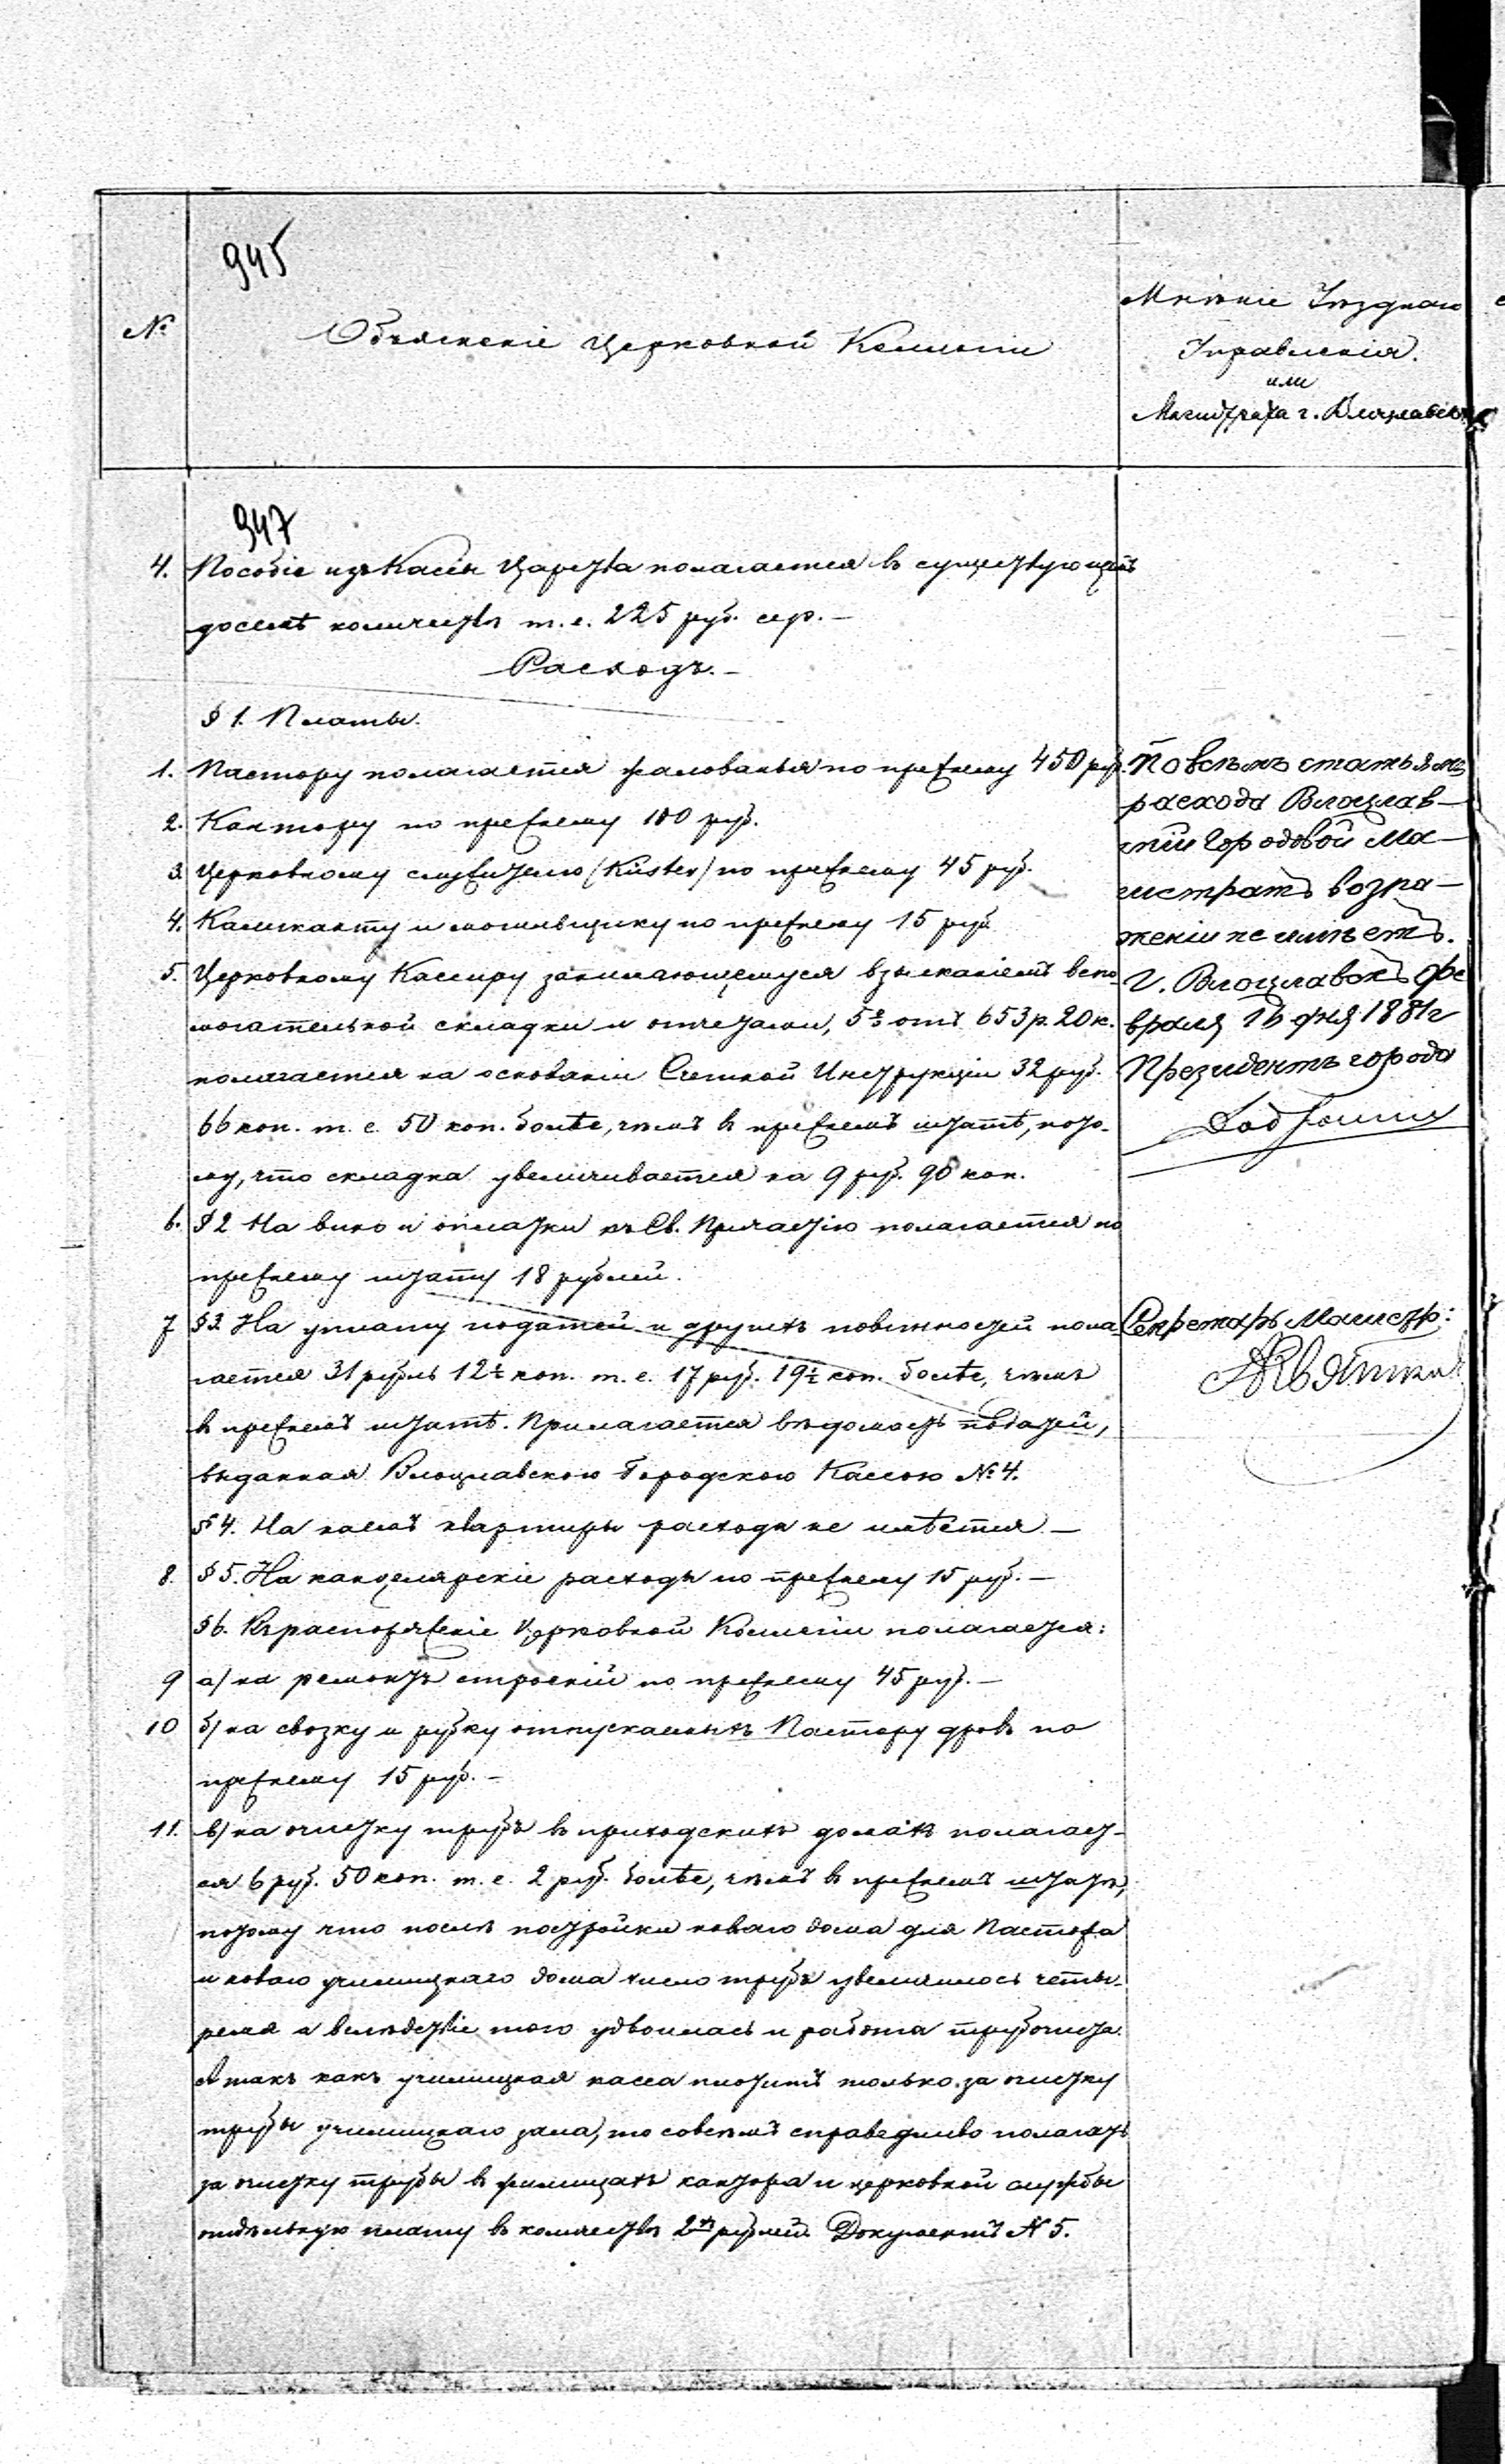 945
№
Объясненіе Церковной Коллегіи
Мнѣніе Уѣзднаго
Управленія.
или
Магистрата г. Влоцлавска
947
4. Пособіе изъ Кассы Царства полагается въ существующемъ
доселѣ количествѣ т. е. 225 руб. сер. —
Расходъ. —
§ 1. Платы.
1. Пастору полагается жалованья по прежнему 450 руб.
2. Кантору по прежнему 100 руб.
3. Церковному служителю (Küster) по прежнему 45 руб.
4. Калканту и могильщику по прежнему 15 руб.
5. Церковному Кассиру занимающемуся взысканіемъ вспо-
могательной складки и отчетами, 5% отъ 653 р. 20 к.
полагается на основаніи Счетной Инструкціи 32 руб.
66 коп. т. е. 50 коп. болѣе, чѣмъ въ прежнемъ штатѣ, пото-
му, что складка увеличивается на 9 руб. 90 коп.
6. § 2 На вино и оплатки къ Св. Причастію полагается по
прежнему штату 18 рублей.
7 § 3. На уплату податей и другихъ повинностей пола-
гается 31 рубль 12½ коп. т. е. 17 руб. 19½ коп. болѣе, чѣмъ
въ прежнемъ штатѣ. Прилагается вѣдомость податей,
выданная Влоцлавскою Городскою Кассою № 4.
§ 4. На наемъ квартиры расхода не имѣется —
8. § 5. На канцелярскіе расходы по прежнему 15 руб. —
§ 6. Къ распоряженіе Церковной Коллегіи полагается:
9 а) на ремонтъ строеній по прежнему 45 руб. —
10 б) на свозку и рубку отпускаемыхъ Пастору дровъ по
прежнему 15 руб. —
11. в) на очистку трубъ въ приходскихъ домахъ полагает-
ся 6 руб. 50 коп. т. е. 2 руб. болѣе, чѣмъ въ прежнемъ штатѣ,
потому что послѣ постройки новаго дома для Пастора
и новаго училищнаго дома число трубъ увеличилось четы-
рема а вслѣдствіе того удвоилась и работа трубочиста.
А такъ какъ училищная касса платитъ только за очистку
трубы училищнаго зала, то совсѣмъ справедливо полагать
за очистку трубы въ жилищахъ кантора и церковной службы
отдѣльную плату въ количествѣ 2хъ рублей. Документъ № 5.
По всѣмъ статьямъ
расхода Влоцлав-
скій Городовой Ма-
гистратъ возра-
женій не имѣетъ.
Г. Влоцлавокъ Фе
враля 16 дня 1881 г
Президентъ города
Секретарь Магистр: